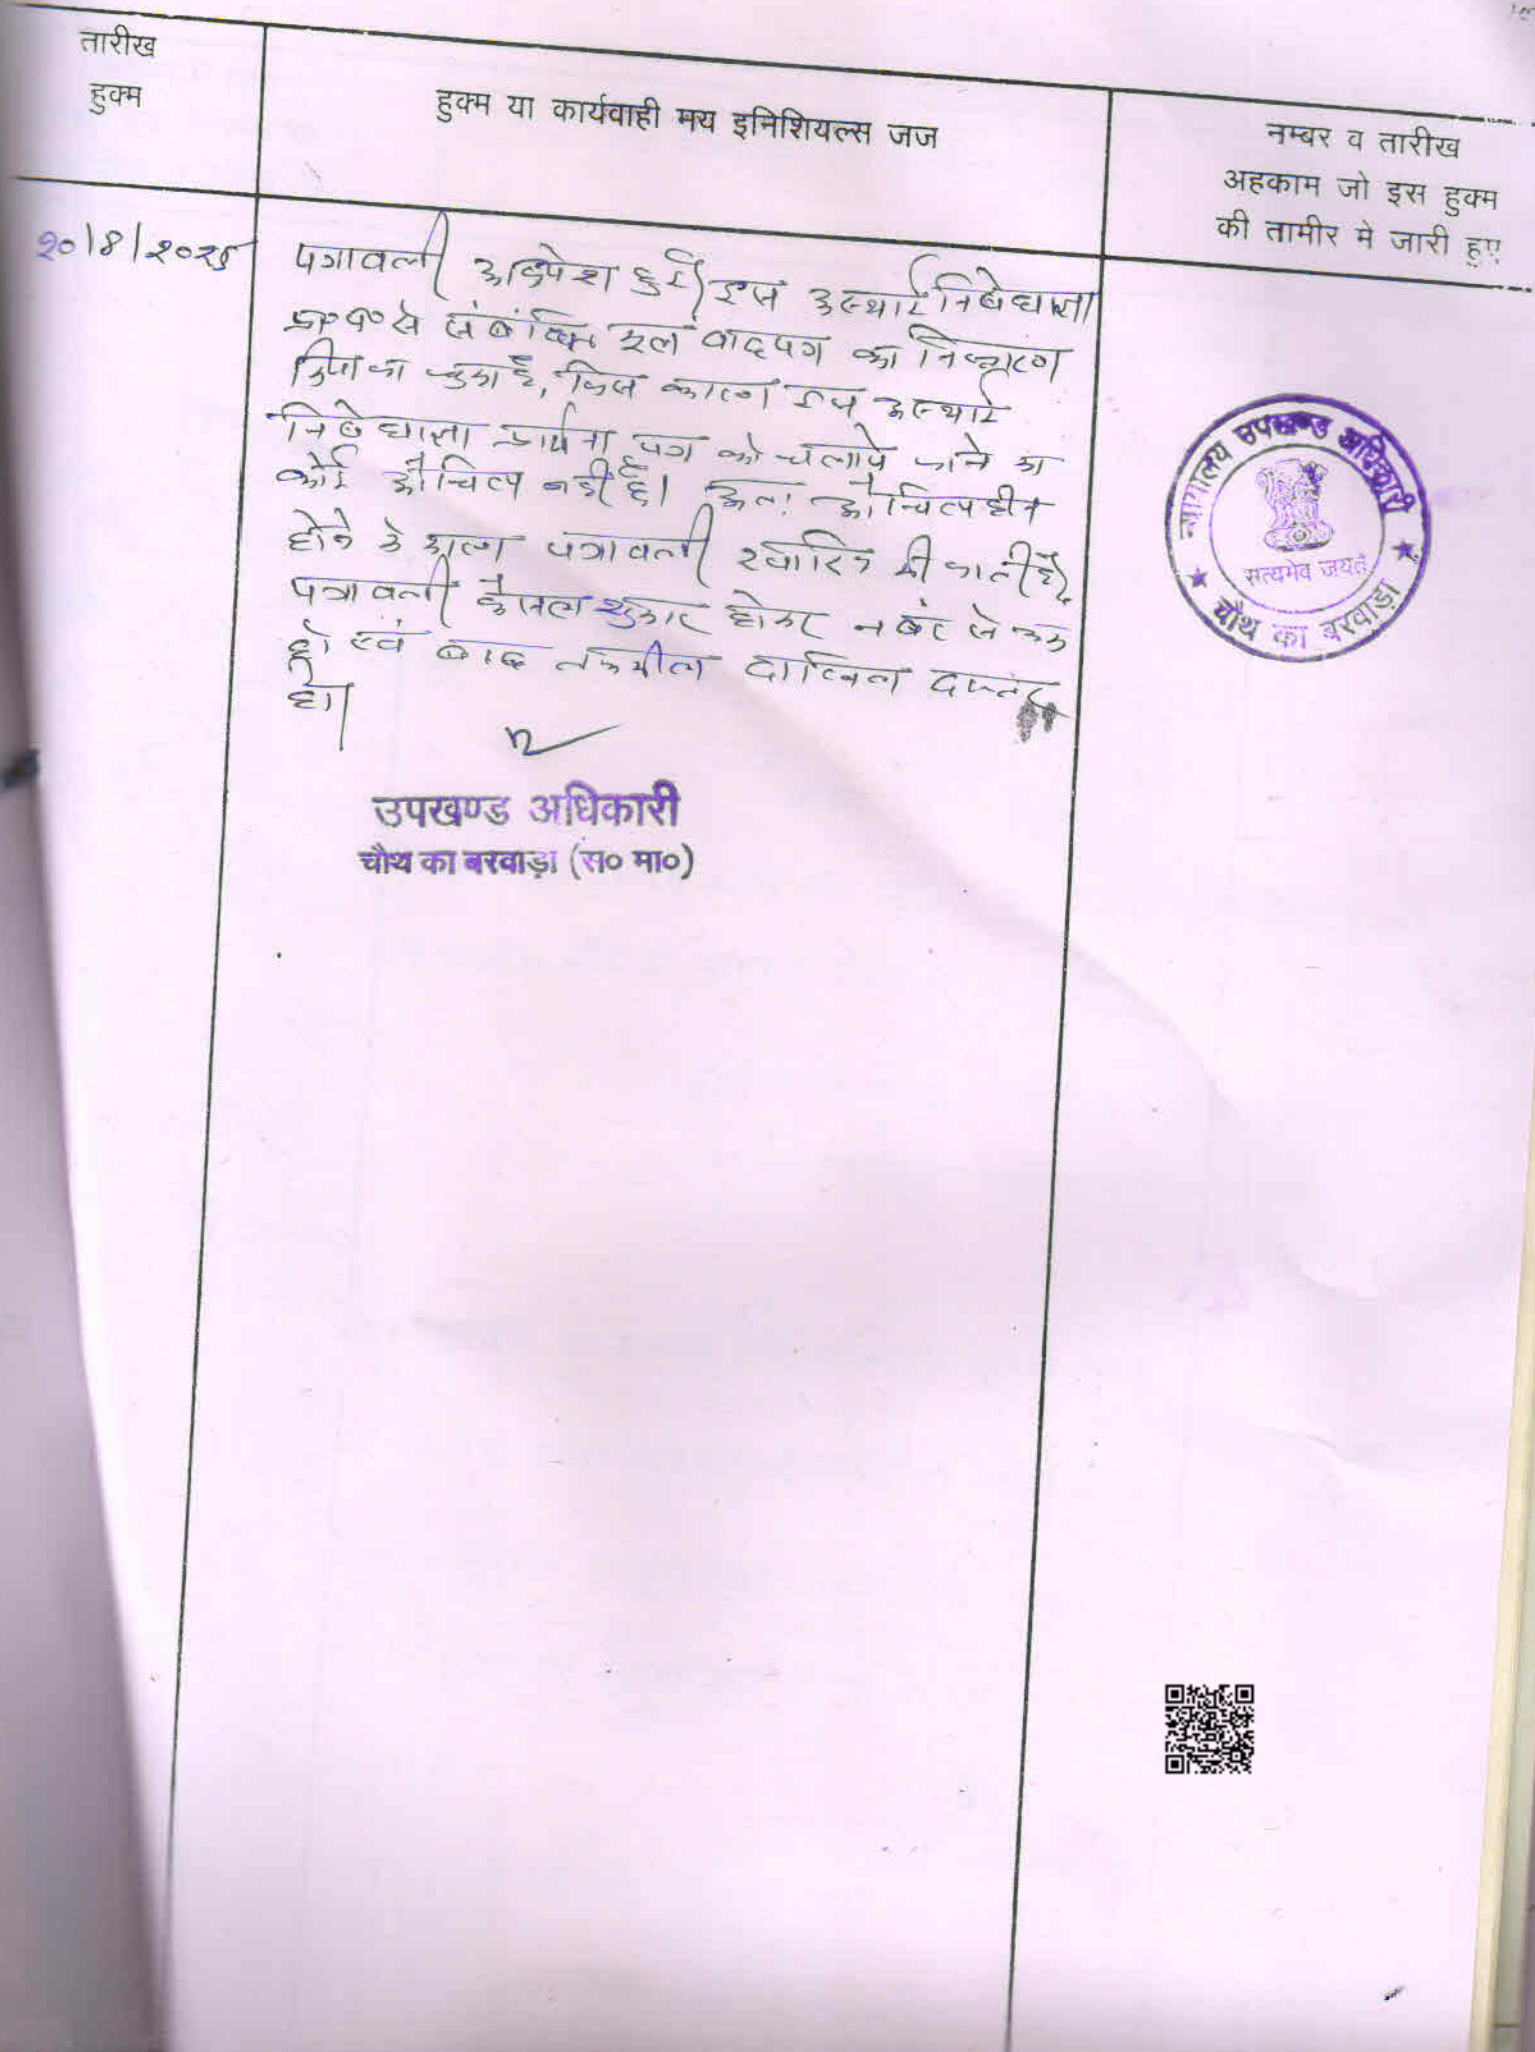 तारीख
हुक्म
हुक्म या कार्यवाही मय इनिशियल्स जज
नम्बर व तारीख
अहकाम जो इस हुक्म
की तामीर मे जारी हुए
२०/8/२०२५
पत्रावली पेश हुई। इस अस्थाई निषेधाज्ञा
प्रा०प० से संबंधित मूल वादपत्र का निस्तारण
किया जा चुका है, जिस कारण इस अस्थाई
निषेधाज्ञा प्रार्थना पत्र को चलाये जाने का
कोई औचित्य नहीं है। अतः औचित्यहीन
होने के कारण पत्रावली खारिज की जाती है।
पत्रावली फैसल शुमार होकर नंबर से कम
हो एवं बाद तकमील दाखिल दफ्तर
हो।
उपखण्ड अधिकारी
चौथ का बरवाड़ा (स० मा०)
न्यायालय उपखण्ड अधिकारी
सत्यमेव जयते
चौथ का बरवाड़ा